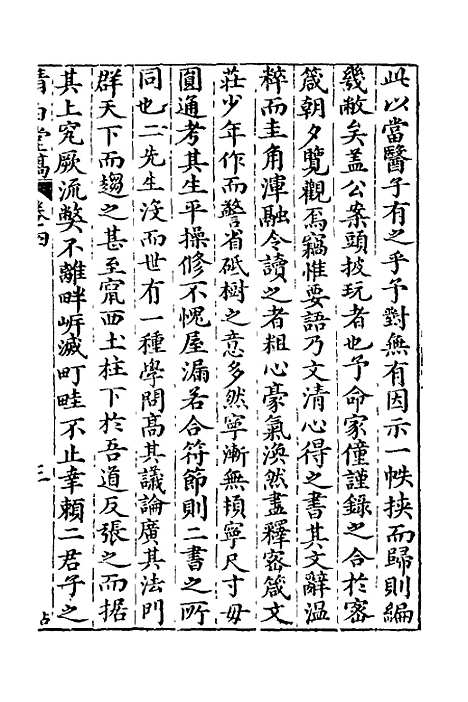 此以當醫子有之乎予對無有因示一帙挾而歸則編
幾敝矣盖公案頭披玩者也予命家僮謹錄之合於密
箴朝夕覽觀焉竊惟要語乃文清心得之書其文辭溫
粹而圭角渾融令讀之者粗心豪氣渙然盡釋密箴文
莊少年作而警省砥樹之意多然寧漸無頓寧尺寸毋
圓通考其生平操修不愧屋漏若合符節則二書之所
同也二先生沒而世有一種學問高其議論廣其法門
群天下而趨之甚至竄西土柱下於吾道反張之而据
其上究厥流獘不離畔㟁滅町畦不止幸賴二君子之
卷四
三